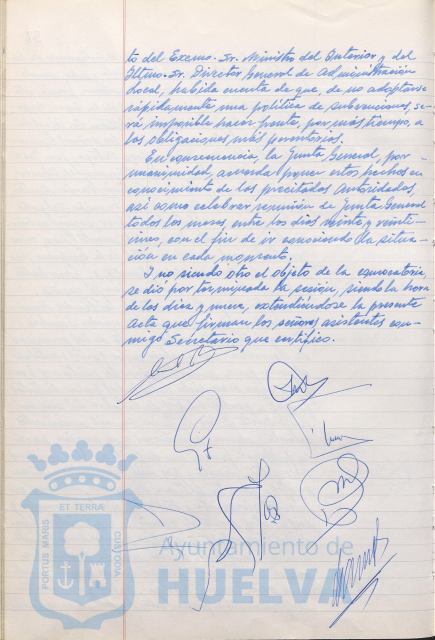 to del Excmo. Sr. Ministro del Interior y del
Iltmo. Sr. Director General de Administración
Local, habida cuenta de que, de no adoptarse
rápidamente una política de subvenciones, se-
rá imposible hacer frente, por más tiempo, a
las obligaciones más perentorias.
En consecuencia, la Junta General, por
unanimidad, acuerda poner estos hechos en
conocimiento de las precitadas Autoridades,
así como celebrar reunión de Junta General
todos los meses, entre los días veinte y veinti-
cinco, con el fin de ir conociendo la situa-
ción en cada momento.
Y no siendo otro el objeto de la convocatoria,
se dió por terminada la sesión, siendo la hora
de las diez y nueve, extendiéndose la presente
Acta que firman los señores asistentes con-
migo Secretario que certifico.
ET TERRÆ
PORTUS MARIS
CUSTODIA
Ayuntamiento de
HUELVA